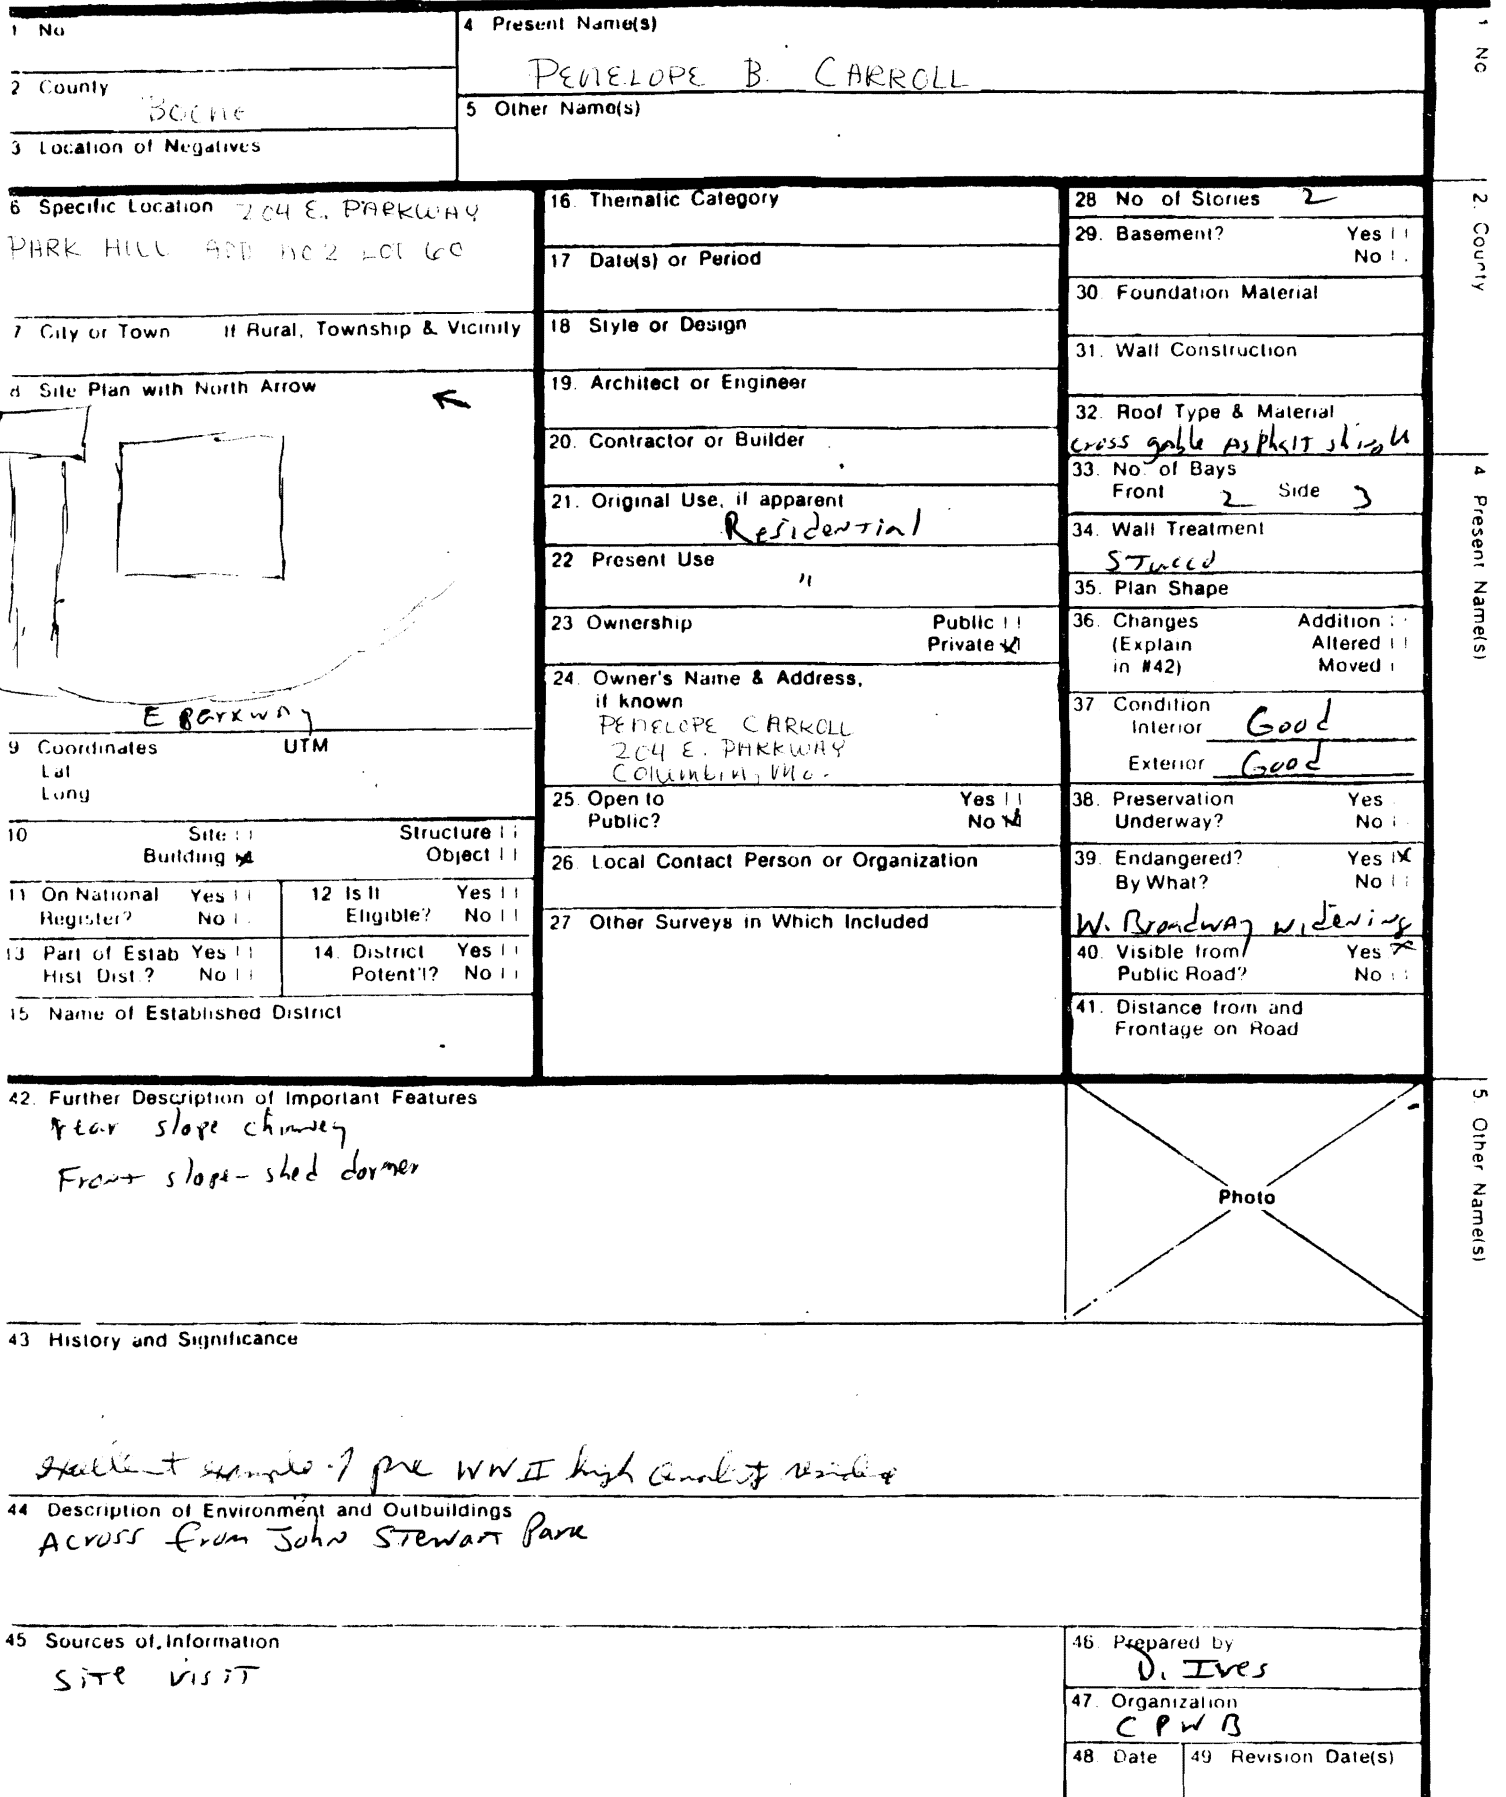 1 No
4 Present Name(s)
PENELOPE B. CARROLL
2 County
Boone
5 Other Name(s)
3 Location of Negatives
6 Specific Location 204 E. PARKWAY
PARK HILL ADD NO 2 LOT 60
7 City or Town If Rural, Township & Vicinity
8 Site Plan with North Arrow
E Parkway
9 Coordinates UTM
Lat
Long
10 Site
Structure
Building
Object
11 On National Register? Yes No
12 Is It Eligible? Yes No
13 Part of Estab Hist Dist.? Yes No
14. District Potent'l? Yes No
15 Name of Established District
16. Thematic Category
17 Date(s) or Period
18 Style or Design
19. Architect or Engineer
20. Contractor or Builder
21. Original Use, if apparent
Residential
22 Present Use
"
23 Ownership Public
Private
24. Owner's Name & Address,
if known
PENELOPE CARROLL
204 E. PARKWAY
Columbia, Mo.
25. Open to Yes
Public? No
26. Local Contact Person or Organization
27 Other Surveys in Which Included
28 No of Stories 2
29. Basement? Yes
No
30. Foundation Material
31. Wall Construction
32. Roof Type & Material
cross gable Asphalt shingle
33. No. of Bays
Front 2 Side 3
34. Wall Treatment
Stucco
35. Plan Shape
36. Changes Addition
(Explain Altered
in #42) Moved
37 Condition
Interior Good
Exterior Good
38. Preservation Yes
Underway? No
39. Endangered? Yes X
By What? No
W. Broadway widening
40. Visible from Yes X
Public Road? No
41. Distance from and
Frontage on Road
42. Further Description of Important Features
rear slope chimney
Front slope - shed dormer
Photo
43 History and Significance
excellent example of pre WW II high quality residence
44 Description of Environment and Outbuildings
Across from John Stewart Park
45 Sources of Information
Site visit
46. Prepared by
D. Ives
47. Organization
CPWB
48. Date
49 Revision Date(s)
1 No
2. County
4 Present Name(s)
5 Other Name(s)